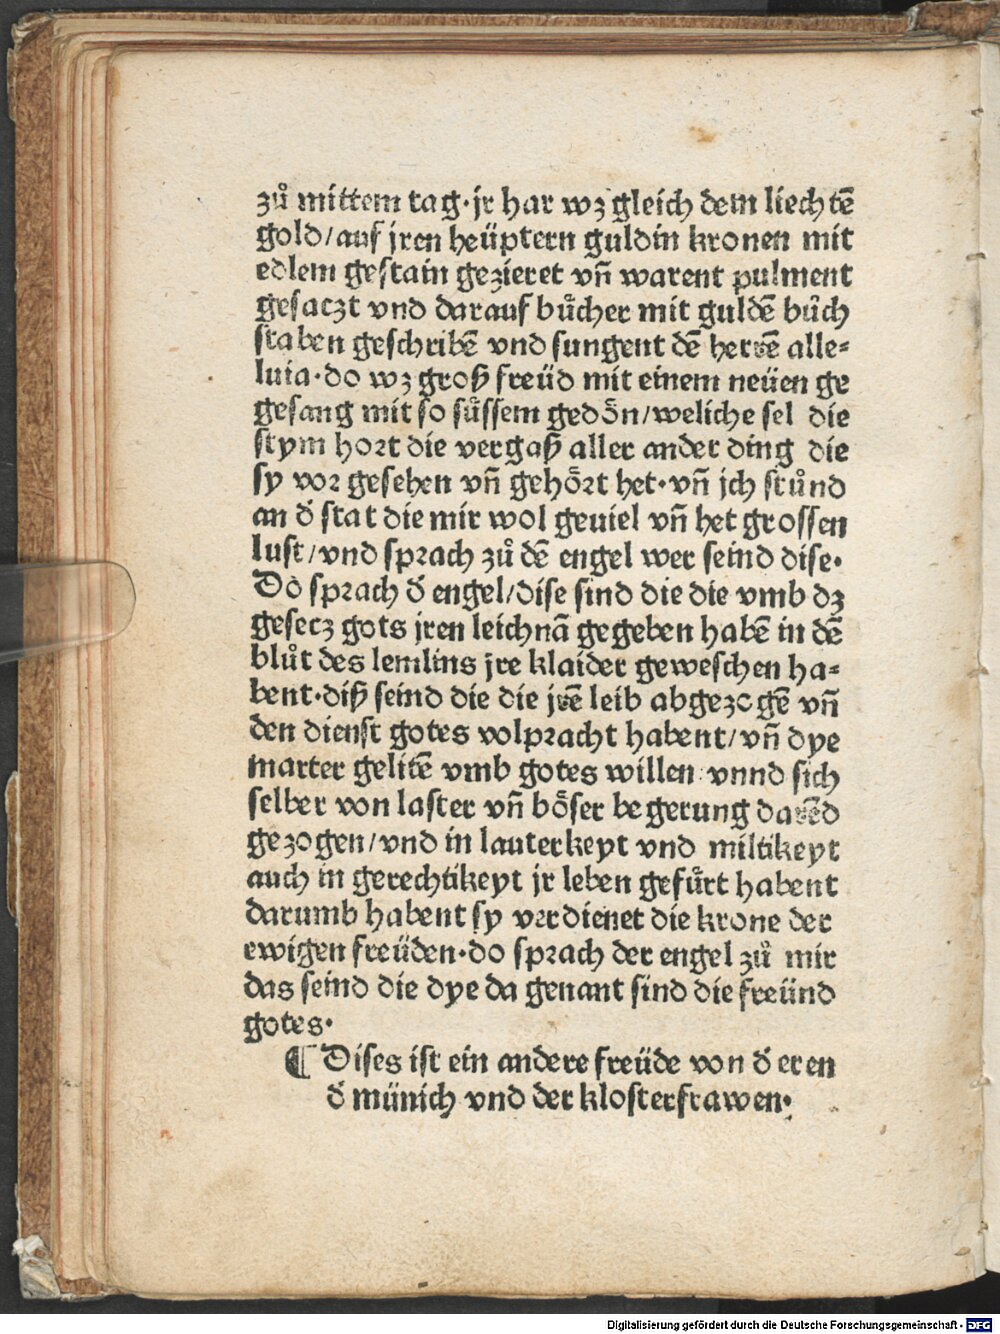 zů mittem tag·jr har wz gleich dem liechtē
gold/auf jren heüptern guldin kronen mit
edlem gestain gezieret vñ warent pulment
gesaczt vnd darauf bůcher mit guldē bůch
staben geschribē vnd sungent dē herrē alle⸗
luia·do wz groß freüd mit einem neüen ge
gesang mit so sůssem gedoͤn/weliche sel die
stym hort die vergaß aller ander ding die
sy vor gesehen vñ gehoͤrt het·vñ jch stůnd
an d̄ stat die mir wol geuiel vñ het grossen
lust/vnd sprach zů dē engel wer seind dise·
Do sprach d̄ engel/dise sind die die vmb dz
gesecz gots jren leichnā gegeben habē in dē
blůt des lemlins jre klaider geweschen ha⸗
bent·diß seind die die jrē leib abgezogē vñ
den dienst gotes volpracht habent/vñ dye
marter gelitē vmb gotes willen vnnd sich
selber von laster vñ boͤser begerung
gezogen/vnd in lauterkeyt vnd miltikeyt
auch in gerechtikeyt jr leben gefůrt habent
darumb habent sy verdienet die krone der
ewigen freüden·do sprach der engel zů mir
das seind die dye da genant sind die freünd
gotes·
¶ Dises ist ein andere freüde von d̄ eren
d̄ münich vnd der klosterfrawen·
Digitalisierung gefördert durch die Deutsche Forschungsgemeinschaft - DFG